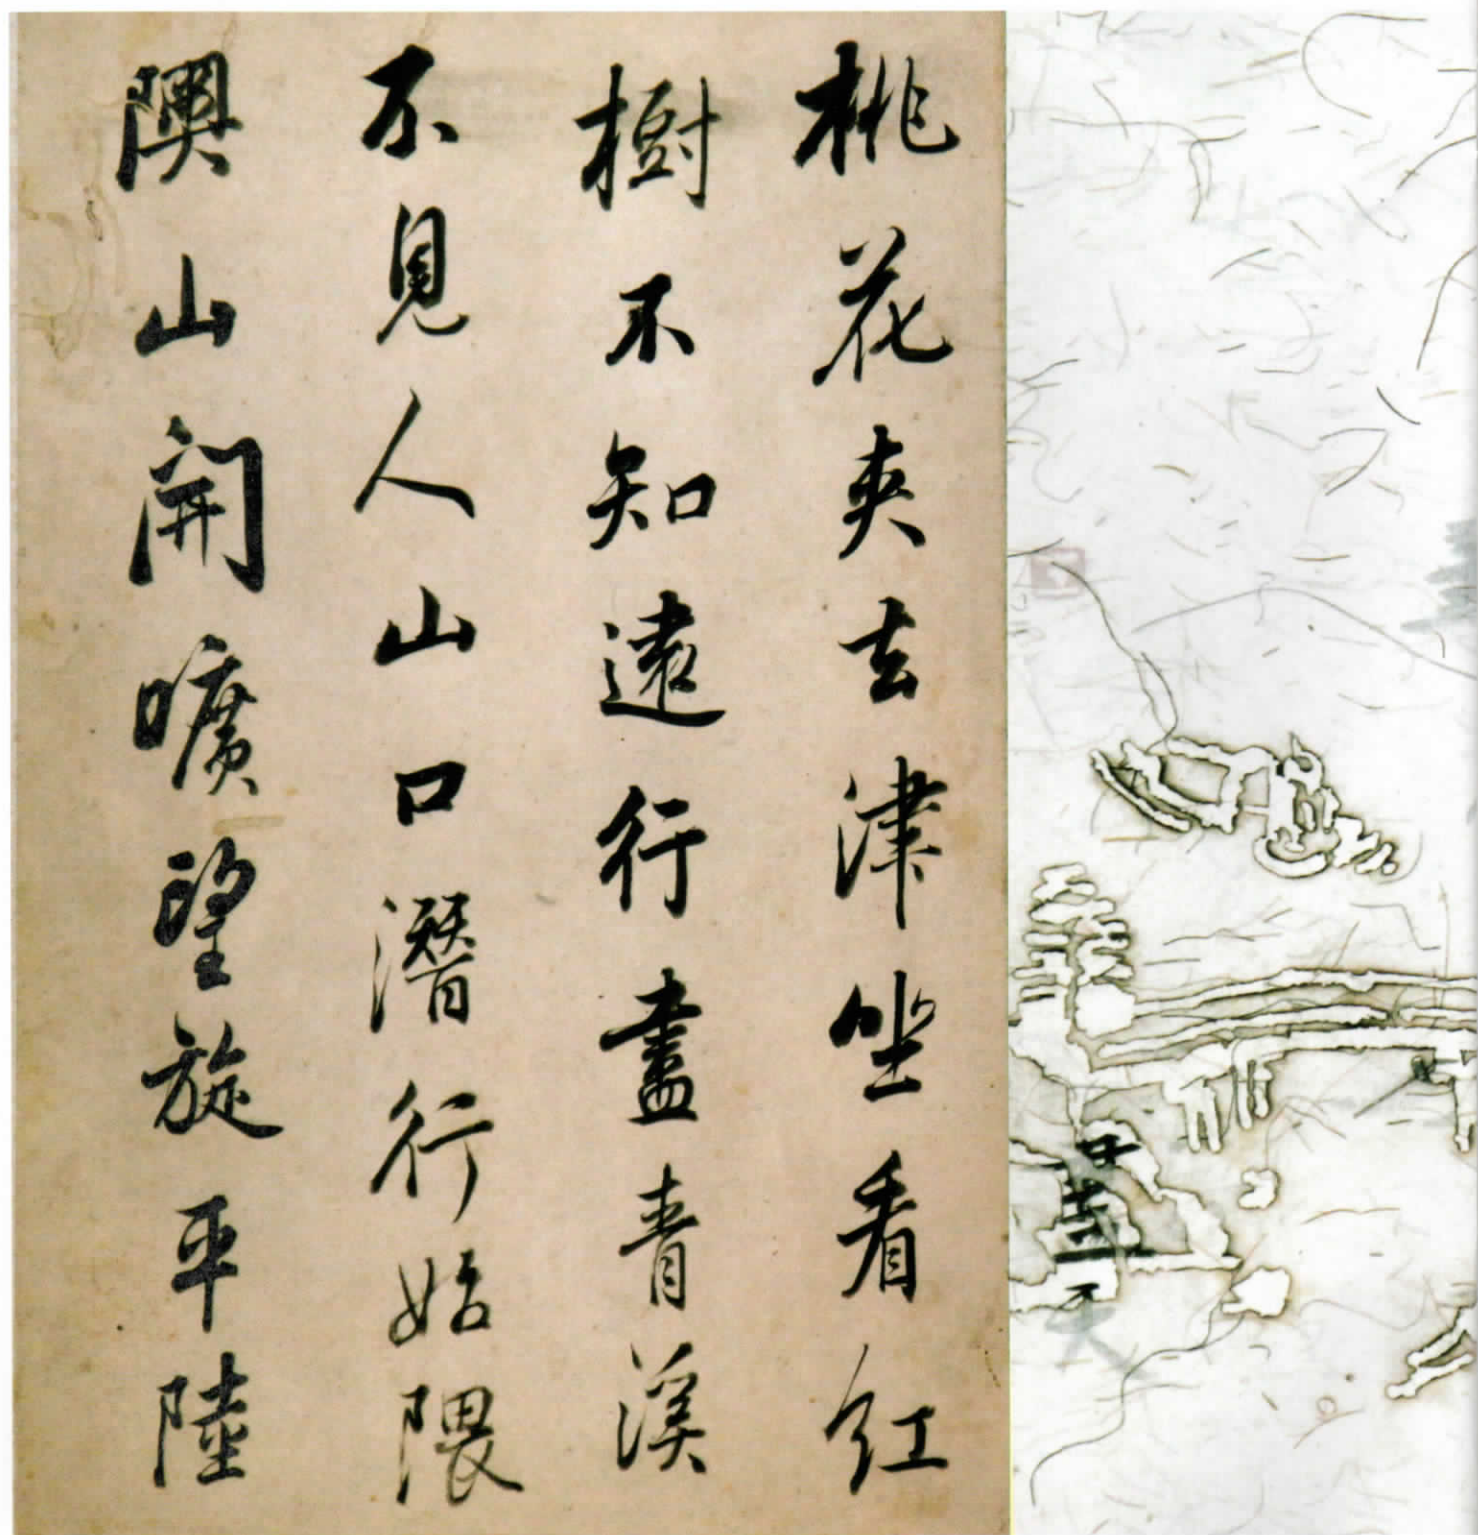 桃花夾去津坐看紅
樹不知遠行盡青溪
不見人山口潛行始隈
隩山開曠望旋平陸